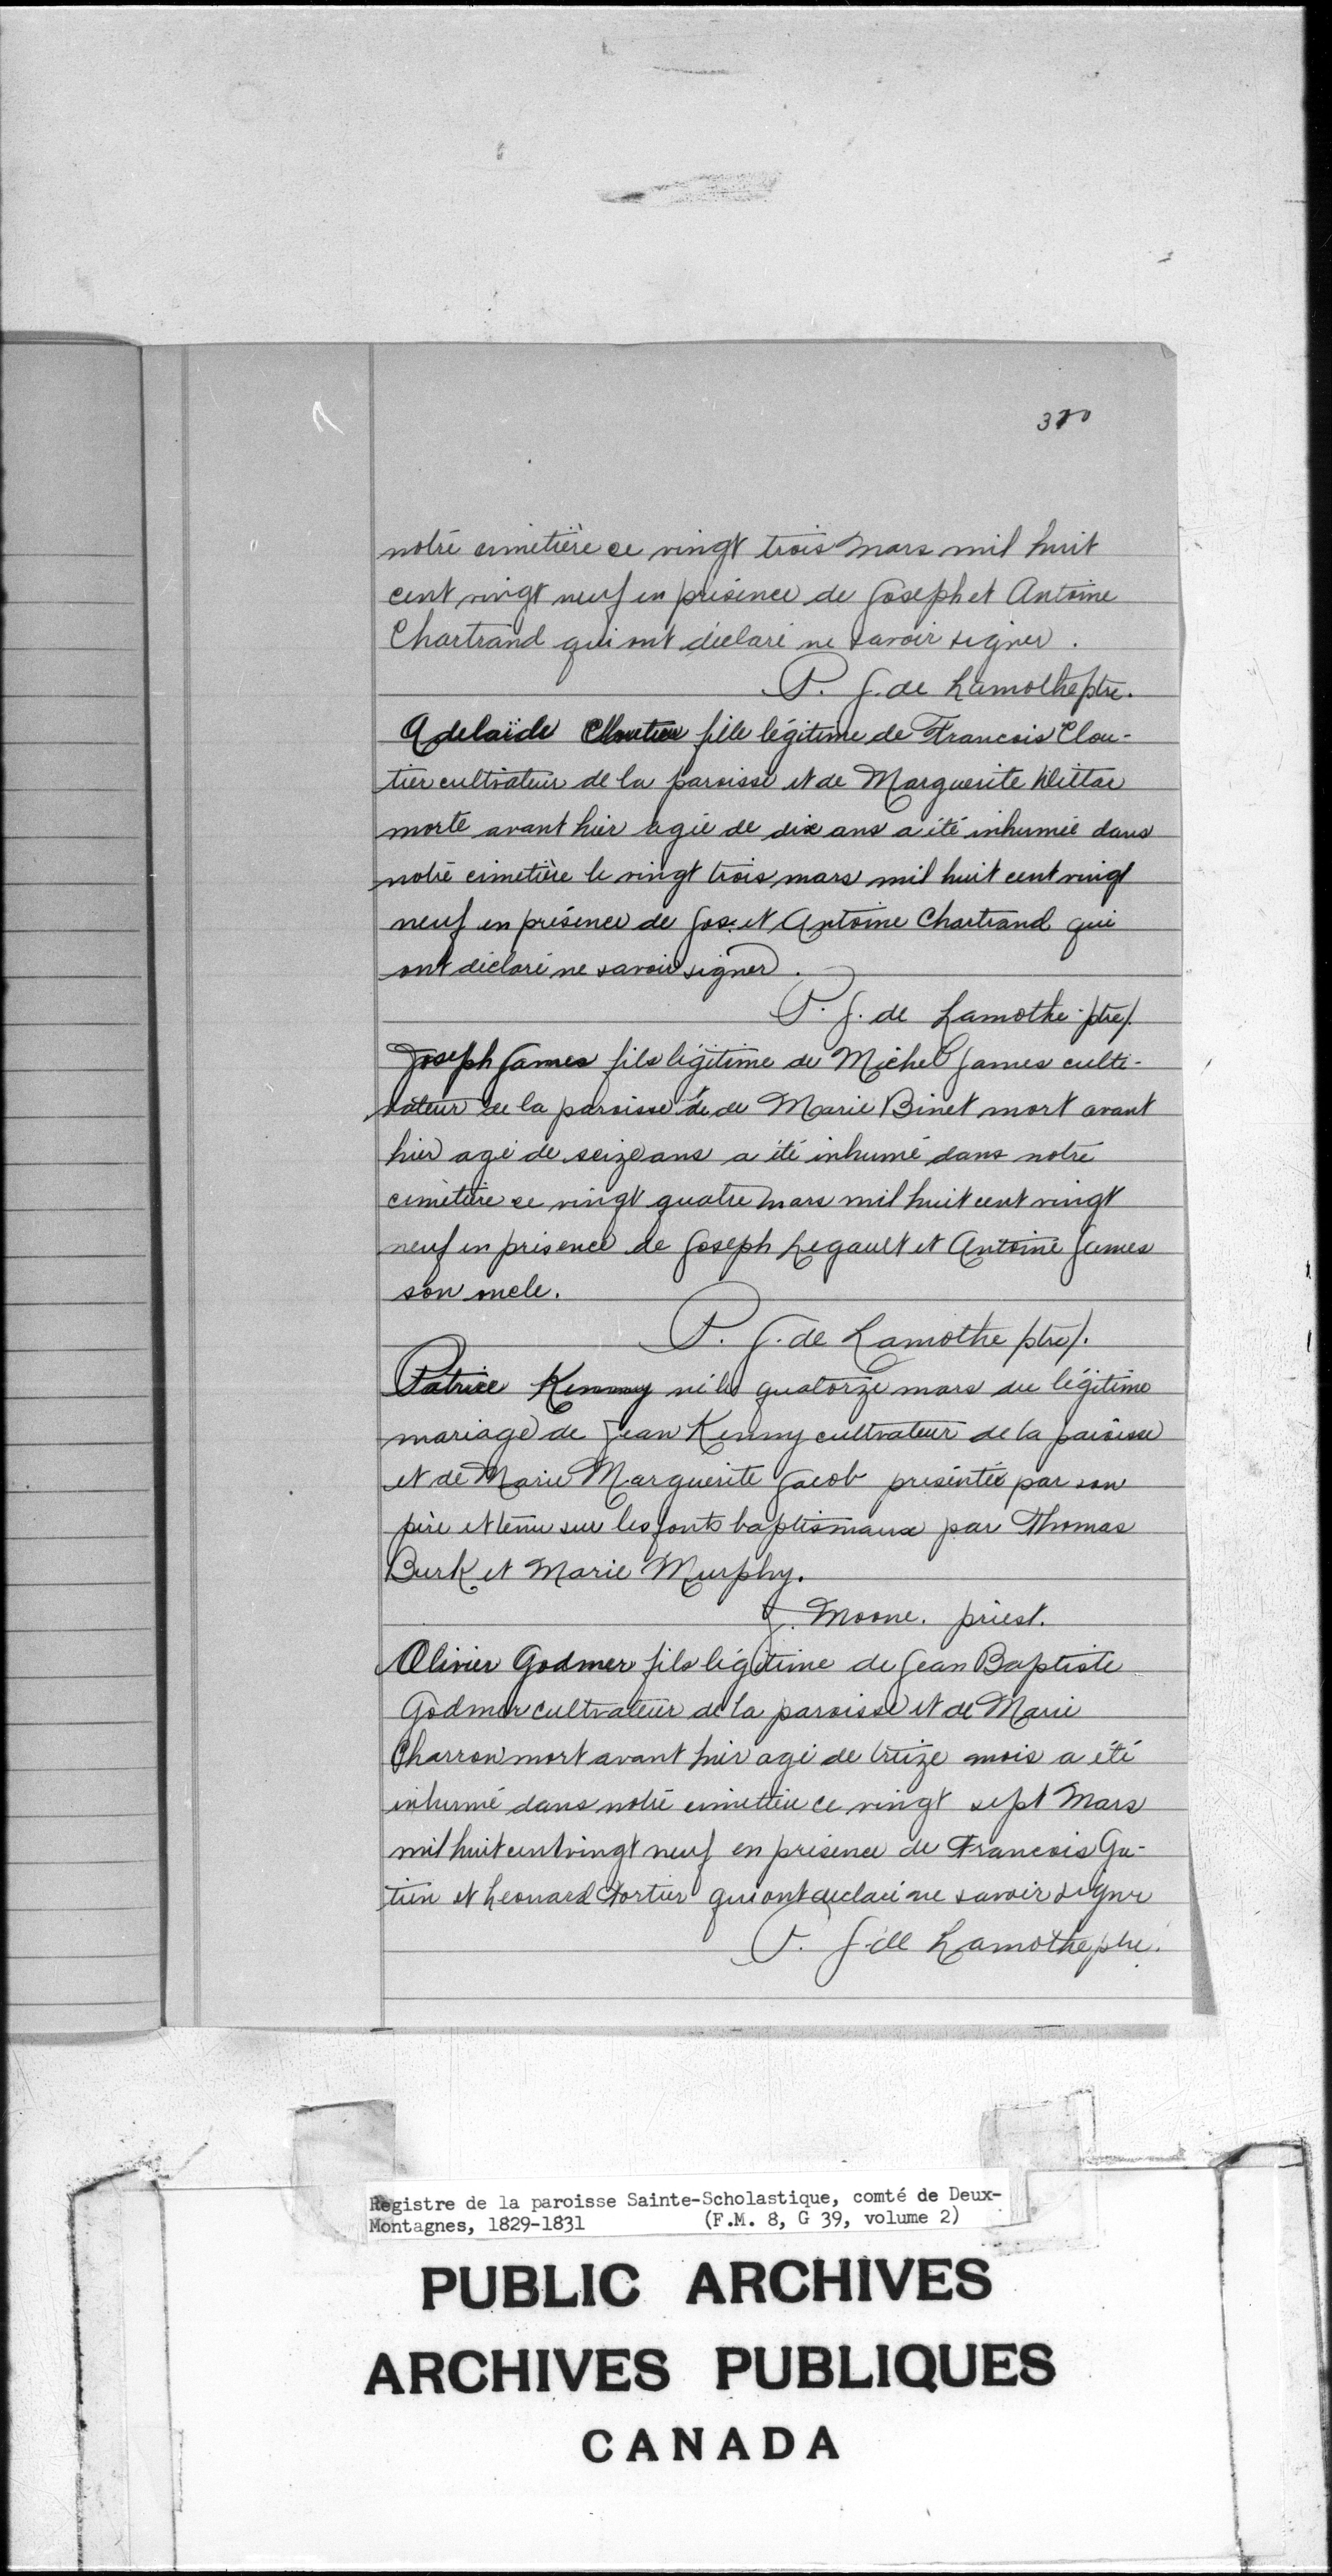 notre cimetière ce vingt trois Mars mil huit
cent vingt neuf en présence de Joseph et Antoine
Chartrand qui ont déclaré ne savoir signer.
P. J. de Lamothe ptre.
Adelaïde Cloutier fille légitime de Francois Clou-
tier cultivateur de la paroisse et de Marguerite
morte avant hier agée de dix ans a été inhumée dans
notre cimetière le vingt trois mars mil huit cent vingt
neuf en présence de Jos. et Antoine Chartrand qui
ont déclaré ne savoir signer.
P. J. de Lamothe ptre/.
Joseph James fils légitime de Michel James culti-
vateur de la paroisse de Marie Binet mort avant
hier agé de seize ans a été inhumé dans notre
cimetière ce vingt quatre mars mil huit cent vingt
neuf en présence de Joseph Legault et Antoine James
son oncle.
P. J. de Lamothe ptre/.
Patrice Kenny né le quatorze mars du légitime
mariage de Jean Kenny cultivateur de la paroisse
et de Marie Marguerite Jacob présenté par son
père et tenu sur les fonts baptismaux par Thomas
Burk et Marie Murphy.
J. Moone. priest.
Olivier Godmer fils légitime de Jean Baptiste
Godmer cultivateur de la paroisse et de Marie
Charron mort avant hier agé de treize mois a été
inhumé dans notre cimetière ce vingt sept Mars
mil huit cent vingt neuf en présence de Francois Ga-
tien et Leonard Fortier qui ont declaré ne savoir signer
P. J. de Lamothe ptre.
Registre de la paroisse Sainte-Scholastique, comté de Deux-
Montagnes, 1829-1831 (F.M. 8, G 39, volume 2)
PUBLIC ARCHIVES
ARCHIVES PUBLIQUES
CANADA